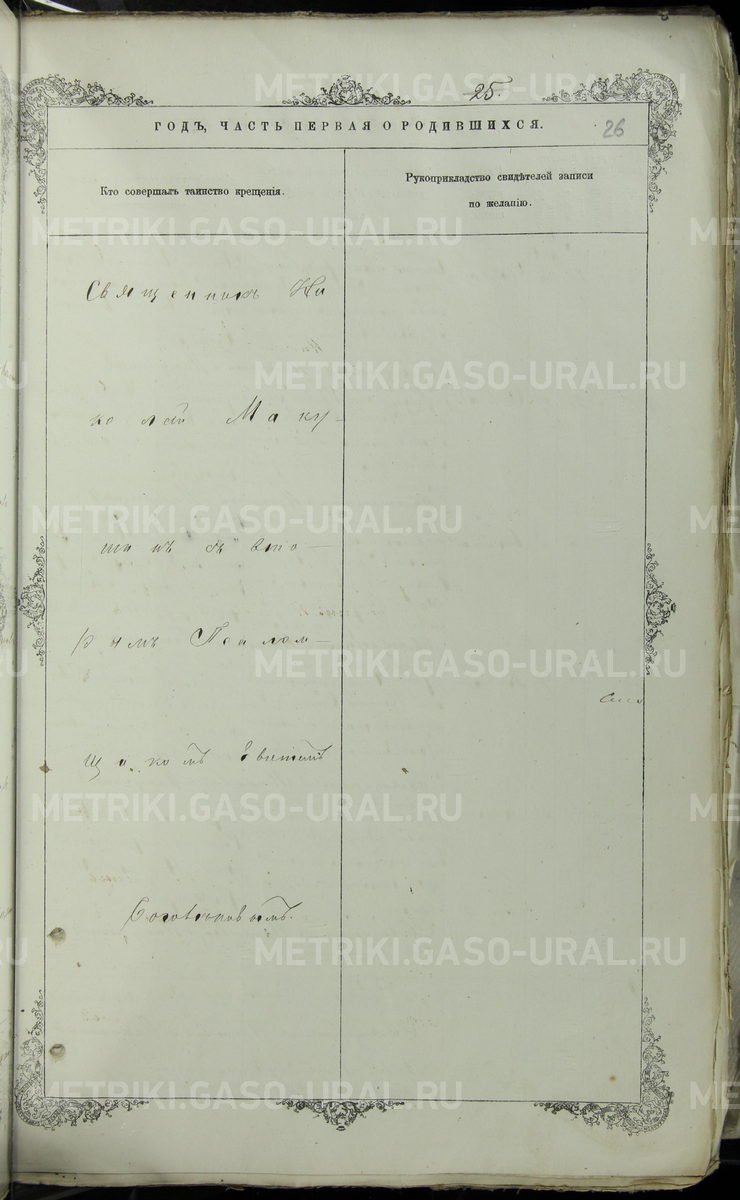 25.
ГОДЪ, ЧАСТЬ ПЕРВАЯ О РОДИВШИХСЯ.
26
Кто совершалъ таинство крещенія.
Рукоприкладство свидѣтелей записи
по желанію.
Священникъ Ни
колай Маку-
шинъ съ вто-
рымъ Псалом-
щикомъ
METRIKI.GASO-URAL.RU